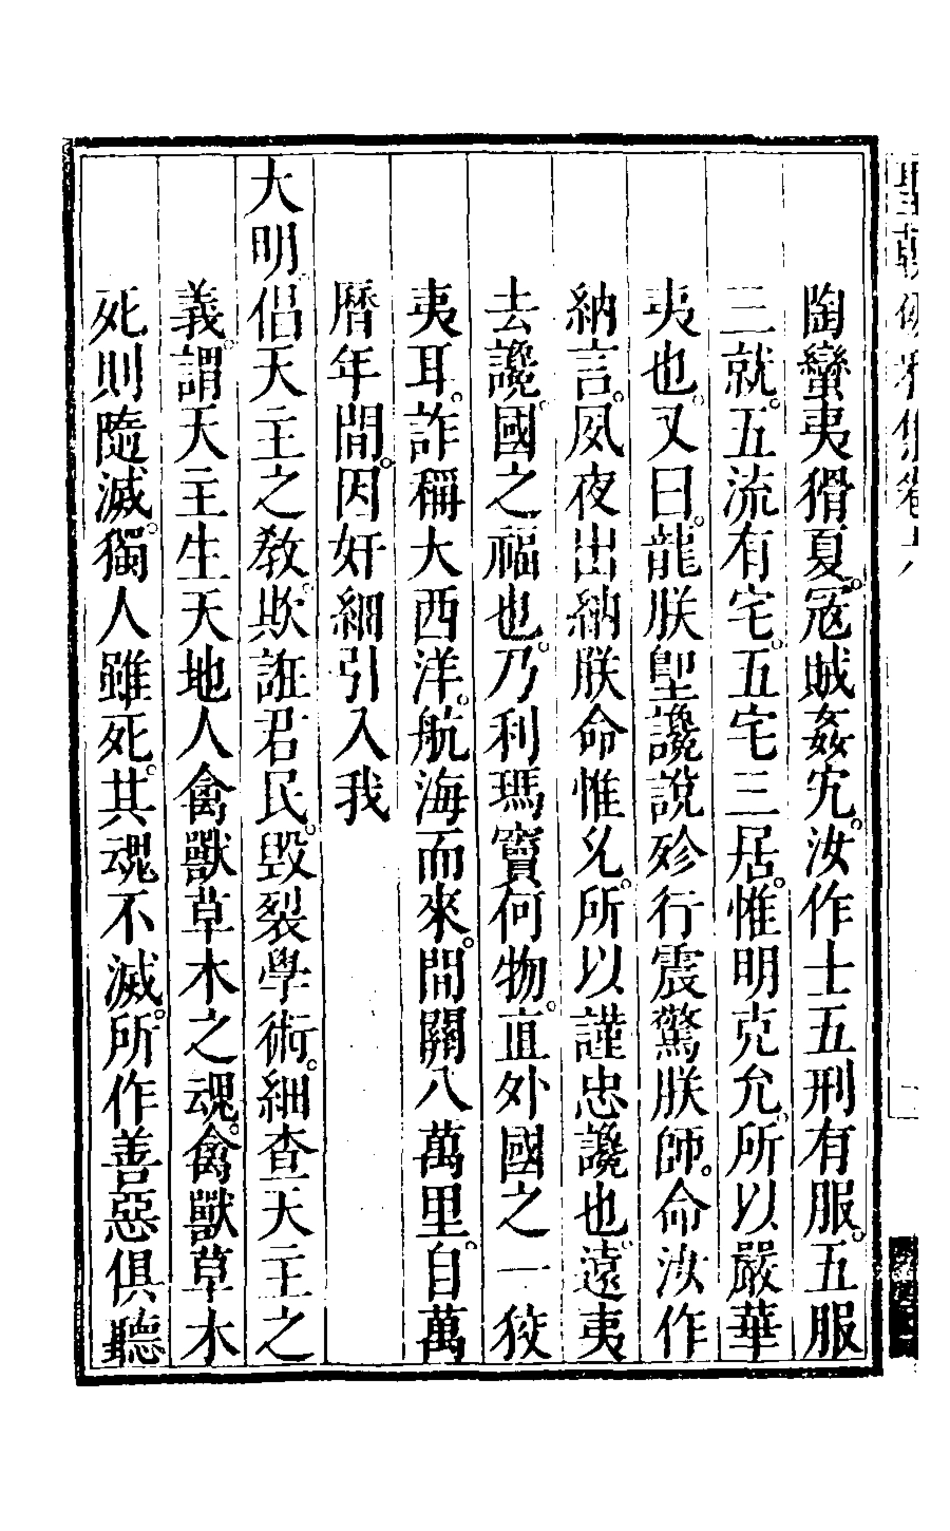 陶蠻夷猾夏。寇賊姦宄。汝作士五刑有服。五服
三就。五流有宅。五宅三居。惟明克允。所以嚴華
夷也。又曰。龍朕堲讒說殄行震驚朕師。命汝作
納言。夙夜出納朕命惟允。所以謹忠讒也。遠夷
去讒。國之福也。乃利瑪竇何物。直外國之一狡
夷耳。詐稱大西洋。航海而來。間關八萬里。自萬
曆年間。因奸細引入我
大明。倡天主之教。欺誑君民。毀裂學術。細查天主之
義。謂天主生天地人禽獸草木之魂。禽獸草木
死則隨滅。獨人雖死。其魂不滅。所作善惡俱聽